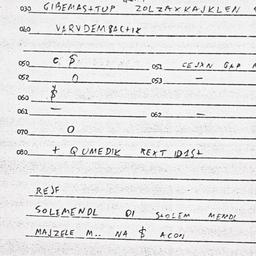 030 GIBEMASTTUP ZOLZAYXAJKLEN
040 VARVDEMBACTIX
050 C $ 051 CEJAN GAP
052 O 053 –
060 $
061 – 062 –
070 O
080 + QUMEDIK REXT ID1S+
REJF
SOLEMENDL DI STOLEM MENDL
MAJZELE M.. NA $ ACON